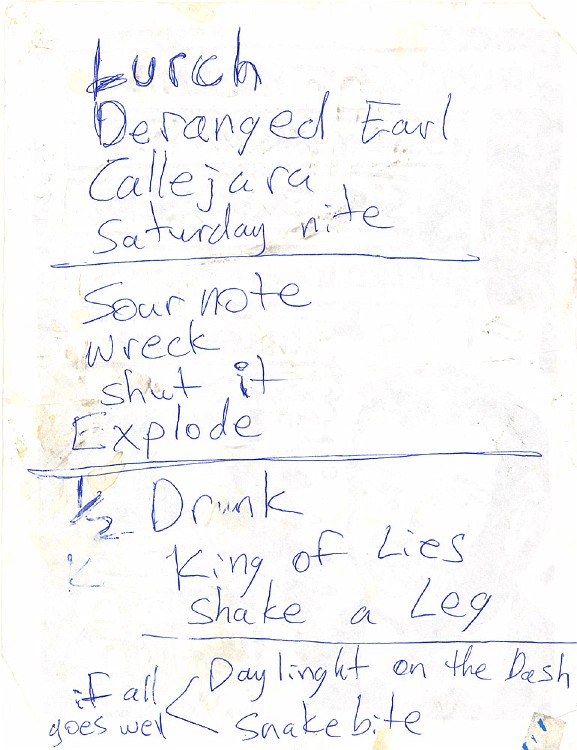 Lurch
Deranged Earl
Callejara
Saturday nite
Sour note
wreck
shut it
Explode
1/2 Drunk
King of Lies
shake a Leg
if all goes well
Daylinght on the Dash
Snakebite